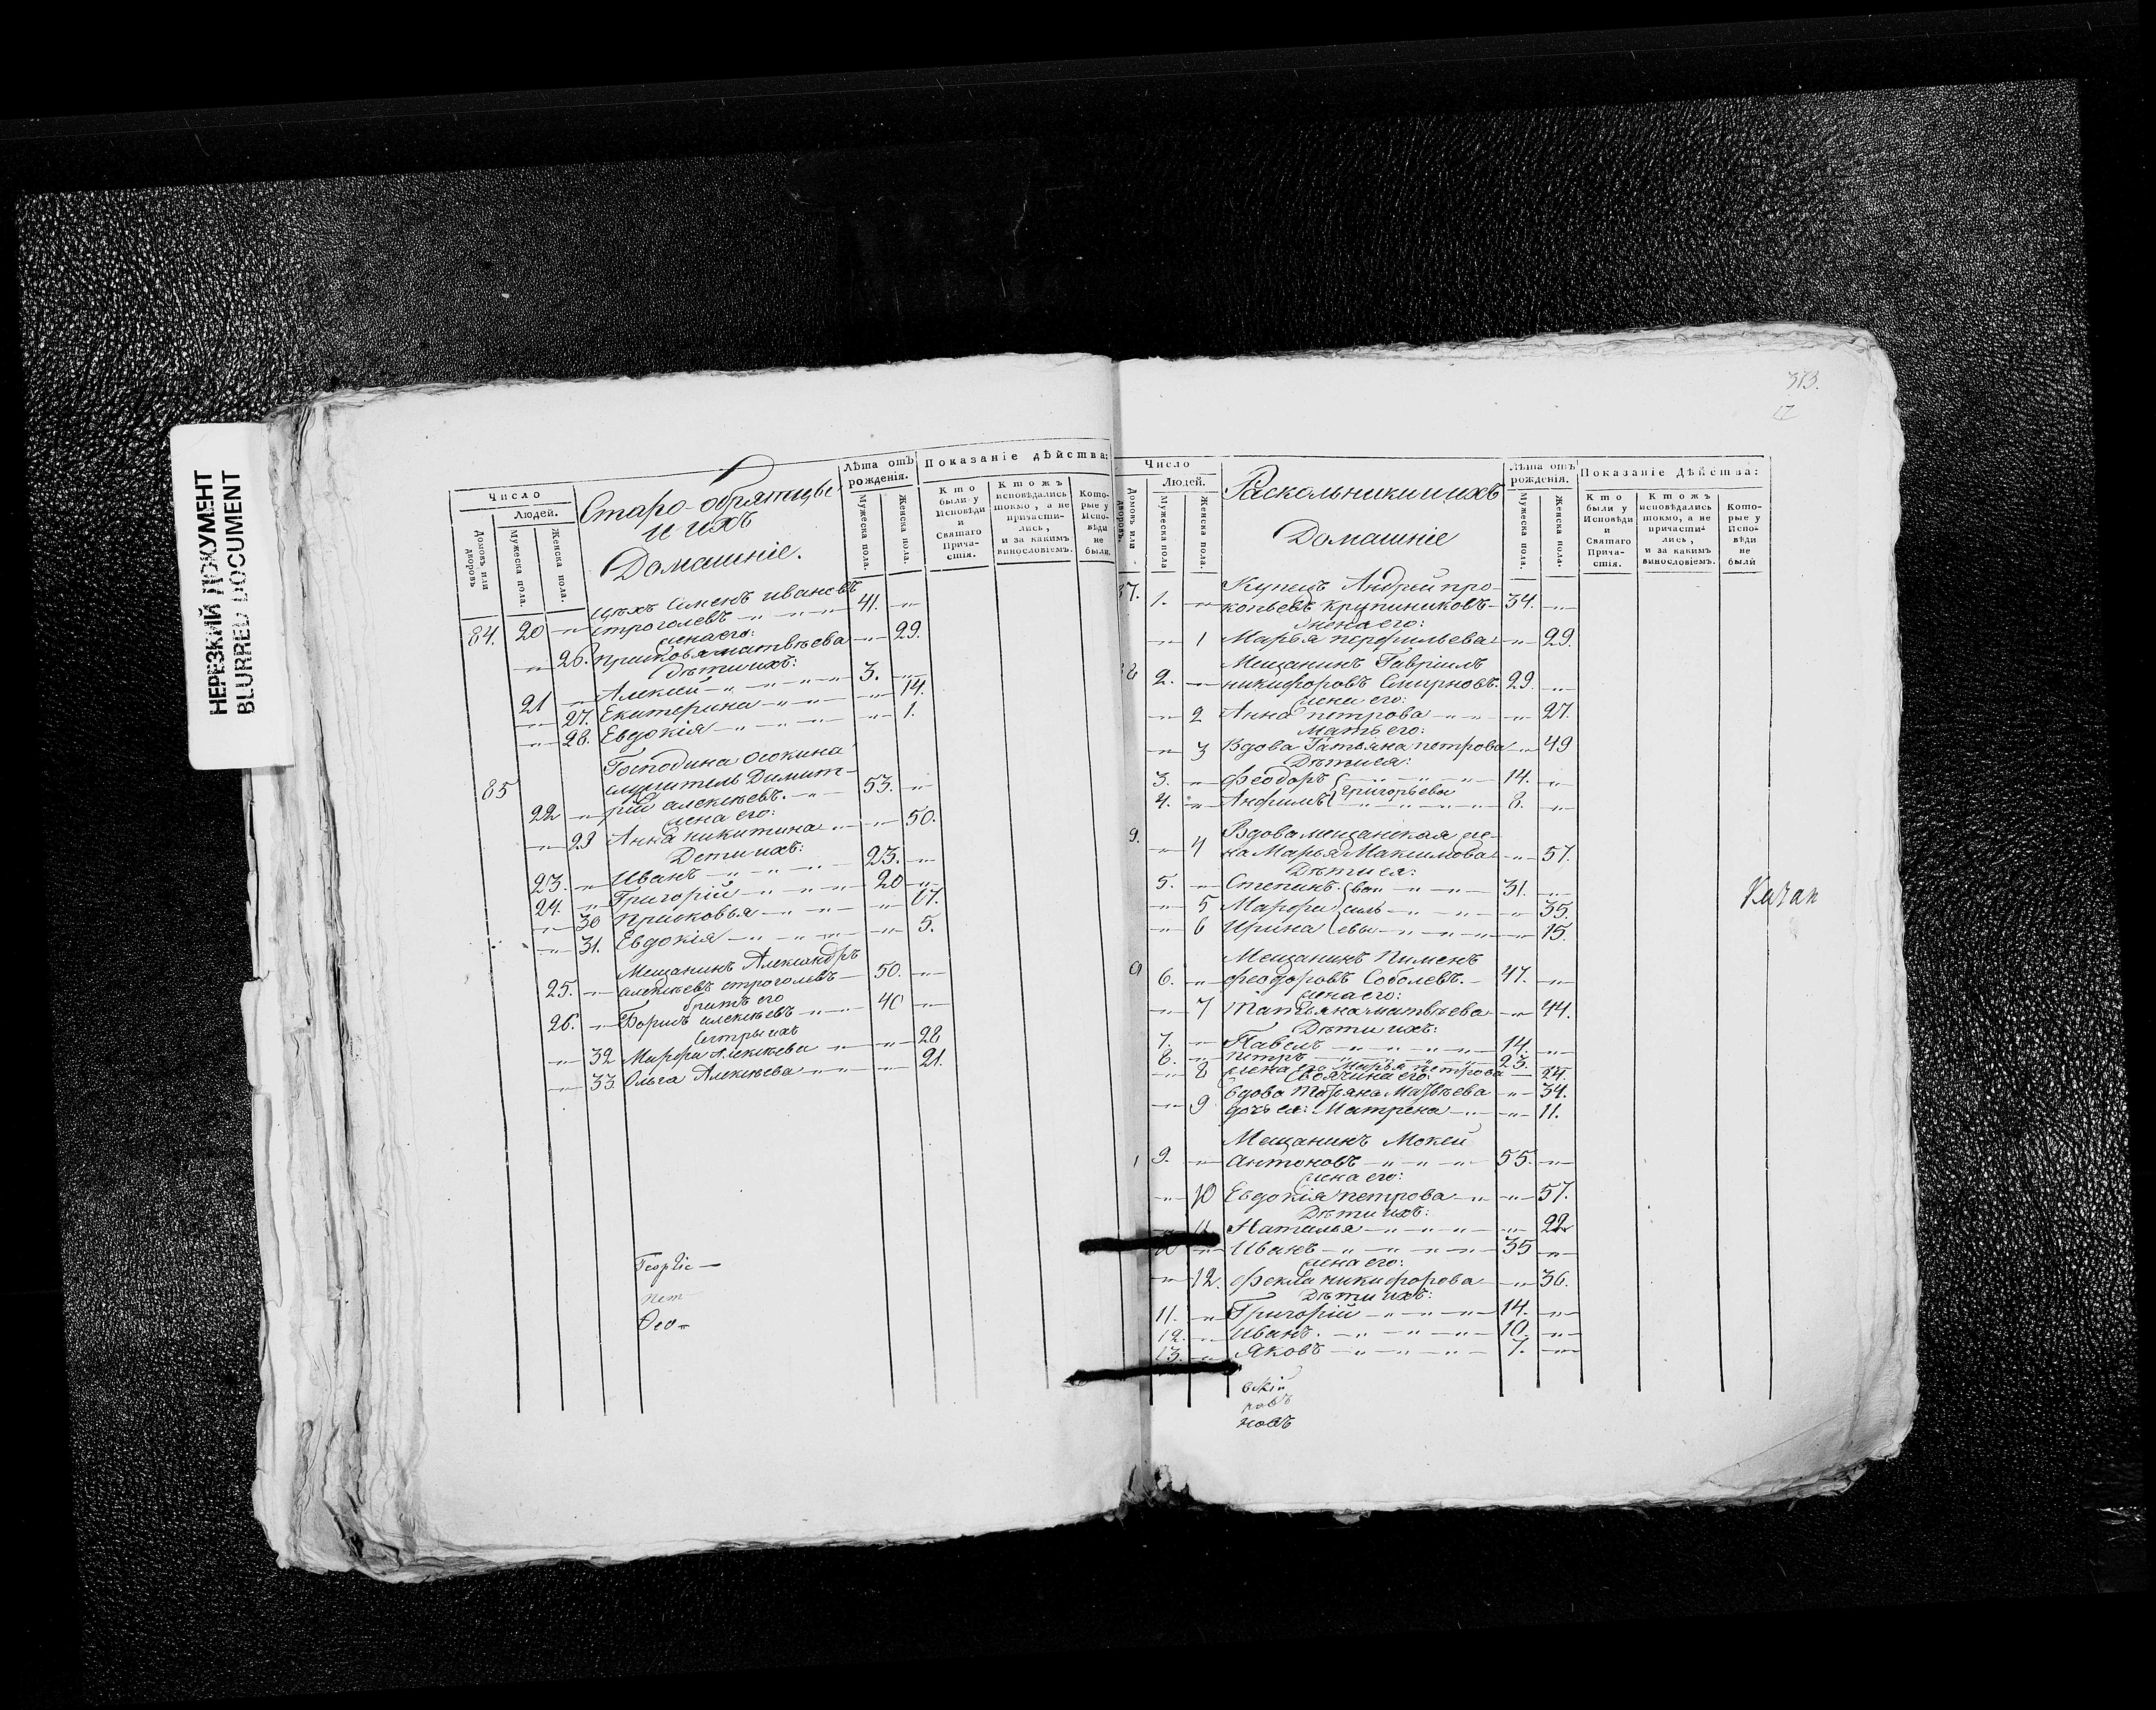 НЕРЕЗКИЙ ДОКУМЕНТ
BLURRED DOCUMENT
Число
Людей.
Домовъ или дворовъ
Мужеска пола.
Женска пола.
Старо-обрятцы
и ихъ
Домашніе.
Лѣта отъ рожденія.
Мужеска пола.
Женска пола.
Показаніе дѣйства:
Кто были у Исповѣди и Святаго Прича-стія.
Ктожъ исповѣдались токмо, а не причасти-лись, и за какимъ винословіемъ.
Кото-рые у Испо-вѣди не были.
Цѣхъ Семенъ Ивановъ
84. 20 — строголевъ — 41. —
жена его:
— 26. Прасковья матвѣева — 29.
Дѣти ихъ:
21 — Алексѣй — 3. —
— 27. Екатерина — 14.
— 28. Евдокія — 1.
85 Господина Осокина
служитель Димит-
22 — рій алексѣевъ. — 53. —
жена его:
— 29 Анна никитина — 50.
Дети ихъ:
23. — Иванъ — 23. —
24. — Григорій — 20 —
— 30 Прасковья — 17.
— 31. Евдокія — 5.
Мещанинъ Александръ
25. — алексѣевъ строголевъ — 50. —
братъ его
26. — Борисъ алексѣевъ — 40 —
сестры ихъ
— 32 Марфа Алексѣева — 28
— 33. Ольга Алексѣева — 21.
Георгіе —
пет
Ѳео=
373.
17
Число
Людей.
Домовъ или дворовъ.
Мужеска пола
Женска пола.
Раскольники и ихъ
Домашніе
Лѣта отъ рожденія.
Мужеска пола.
Женска пола.
Показаніе Дѣйства:
Кто были у Исповѣди и Святаго Прича-стія.
Ктожъ исповѣдались токмо, а не причасти-лись, и за какимъ винословіемъ.
Кото-рые у Испо-вѣди не были
Купецъ Андрей про-
87. 1. — копьевъ Крупениковъ — 34. —
жена его:
— 1 Марья перфильева — 29.
Мещанинъ Гавріилъ
88 2. — никифоровъ Смирновъ. 29. —
жена его:
— 2 Анна петрова — 27.
Мать его:
— 3 Вдова Татьяна петрова — 49
Дѣти ея:
3. — Феодоръ — 14. —
Григорьевы
4. — Анфимъ — 8. —
9. Вдова мещанская же-
— 4 на Марья Максимова — 57.
Дѣти ея:
5. — Степанъ ва — 31. —
— 5 Марфа силь — 35.
— 6 Ирина евы — 15.
Казан
Мещанинъ Пименъ
6. — феодоровъ Соболевъ. — 47. —
жена его:
— 7 Татьяна матвѣева — 44.
Дѣти ихъ:
7. — Павелъ — 14. —
8. — Петръ — 23.
— 8 жена его Марья петрова — 24.
Своячина его:
вдова Татьяна Матвѣева — 34.
— 9 дочь ея: Матрена — 11.
Мещанинъ Мокей
1 9. — антоновъ — 55. —
жена его:
— 10 Евдокія петрова — 57.
Дѣти ихъ:
— 11 Наталья — 22
10 — Иванъ — 35 —
жена его:
— 12. Фекла никифорова — 36.
Дѣти ихъ:
11. — Григорій — 14. —
12. — Иванъ. — 10. —
13. — Яковъ — 7. —
вскій
ровъ
новъ